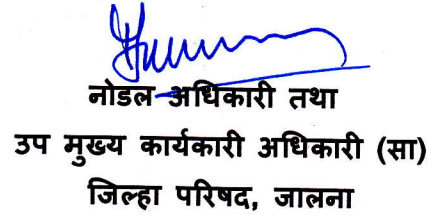 नोडल अधिकारी तथा
उप मुख्य कार्यकारी अधिकारी (सा)
जिल्हा परिषद, जालना